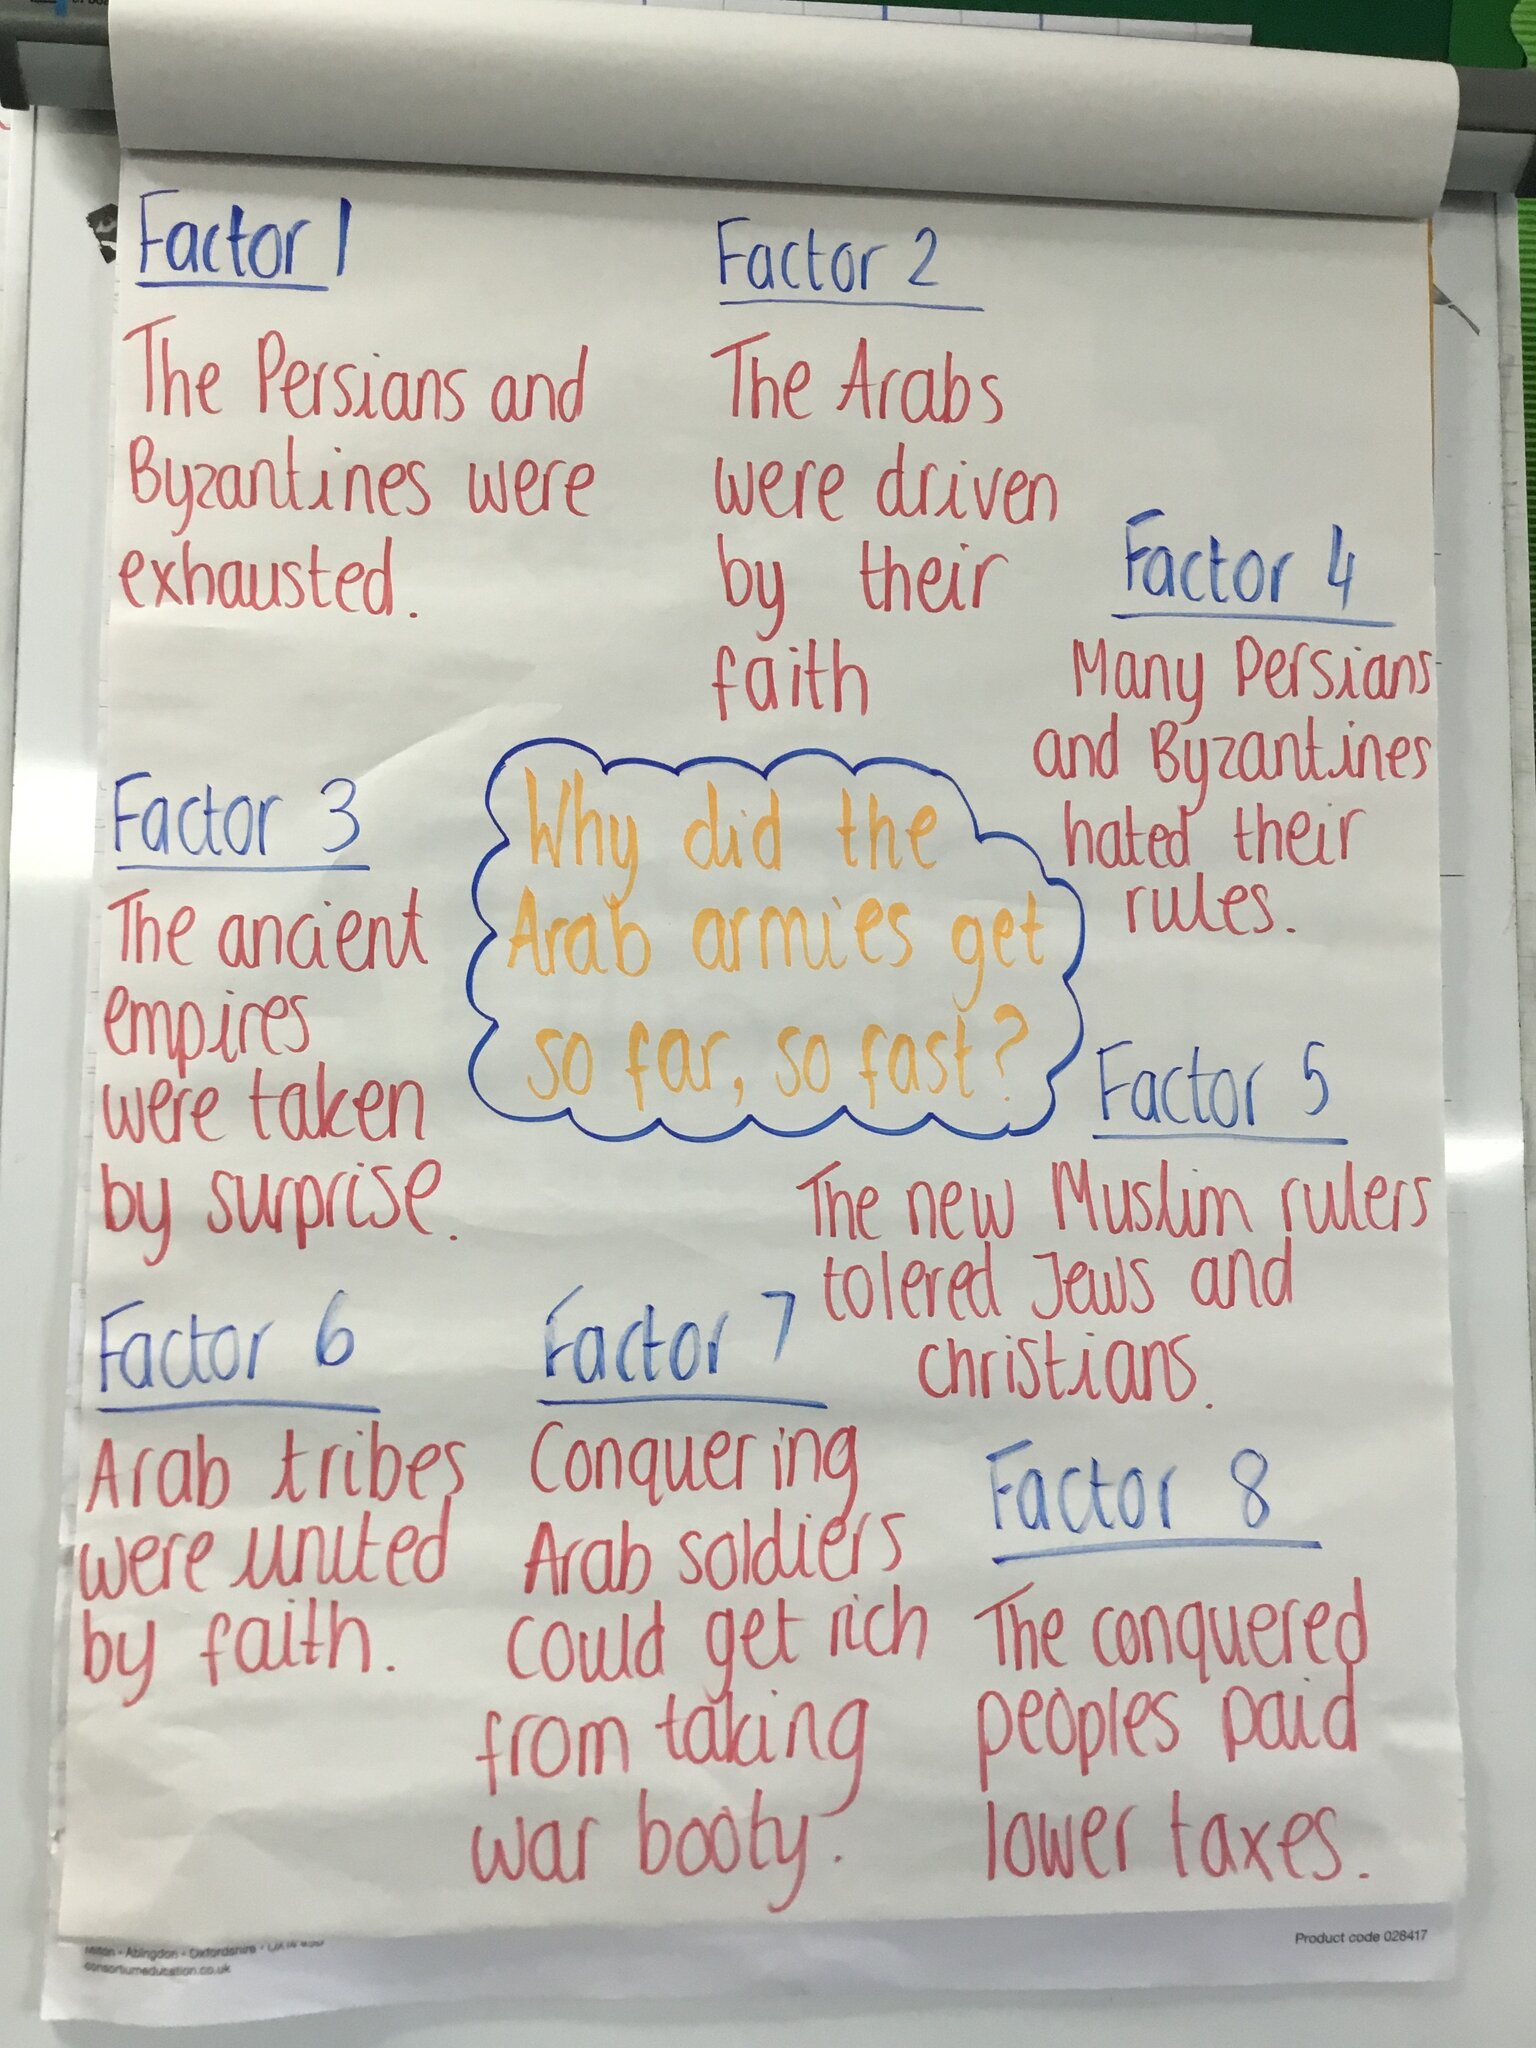 Factor 1
The Persians and
Byzantines were
exhausted.
Factor 2
The Arabs
were driven
by their
faith
Factor 4
Many Persians
and Byzantines
hated their
rules.
Factor 3
The ancient
empires
were taken
by surprise.
Why did the
Arab armies get
so far, so fast?
Factor 5
The new Muslim rulers
tolered Jews and
christians.
Factor 6
Arab tribes
were united
by faith.
Factor 7
Conquering
Arab soldiers
could get rich
from taking
war booty.
Factor 8
The conquered
peoples paid
lower taxes.
Milton - Abingdon - Oxfordshire -
consortiumeducation.co.uk
Product code 028417